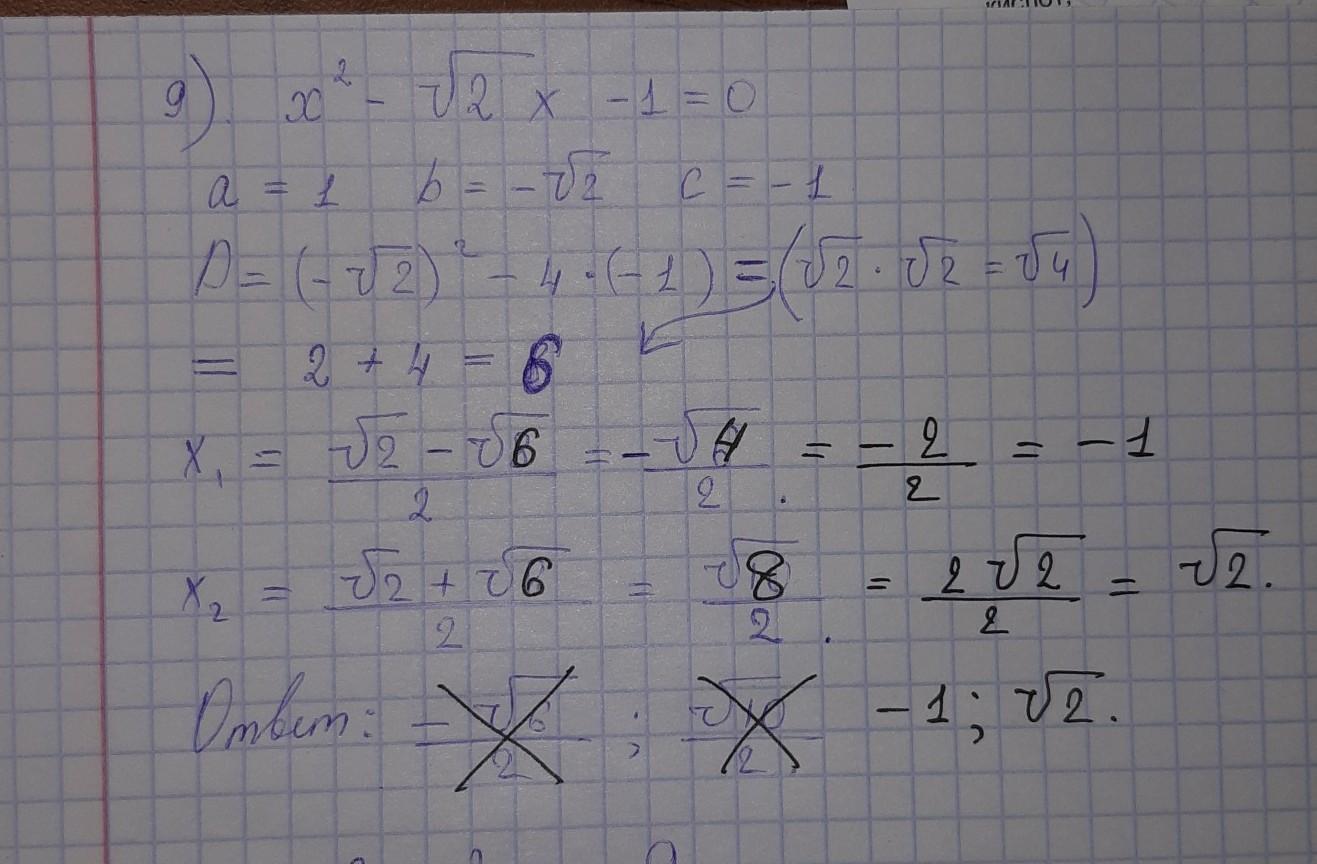 9). x² - √2 x - 1 = 0
a = 1 b = -√2 c = -1
D = (-√2)² - 4 · (-1) = (√2 · √2 = √4)
= 2 + 4 = 6
x₁ = (√2 - √6)/2 = -√4/2 . = -2/2 = -1
x₂ = (√2 + √6)/2 = √8/2 . = 2√2/2 = √2.
Ответ: -√6/2 ; √10/2 -1; √2.